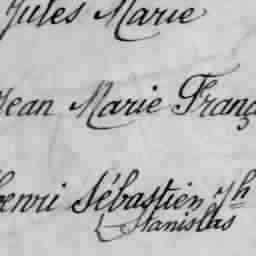 Jules Marie
Jean Marie Franç
Henri Sébastien Jh
Stanislas